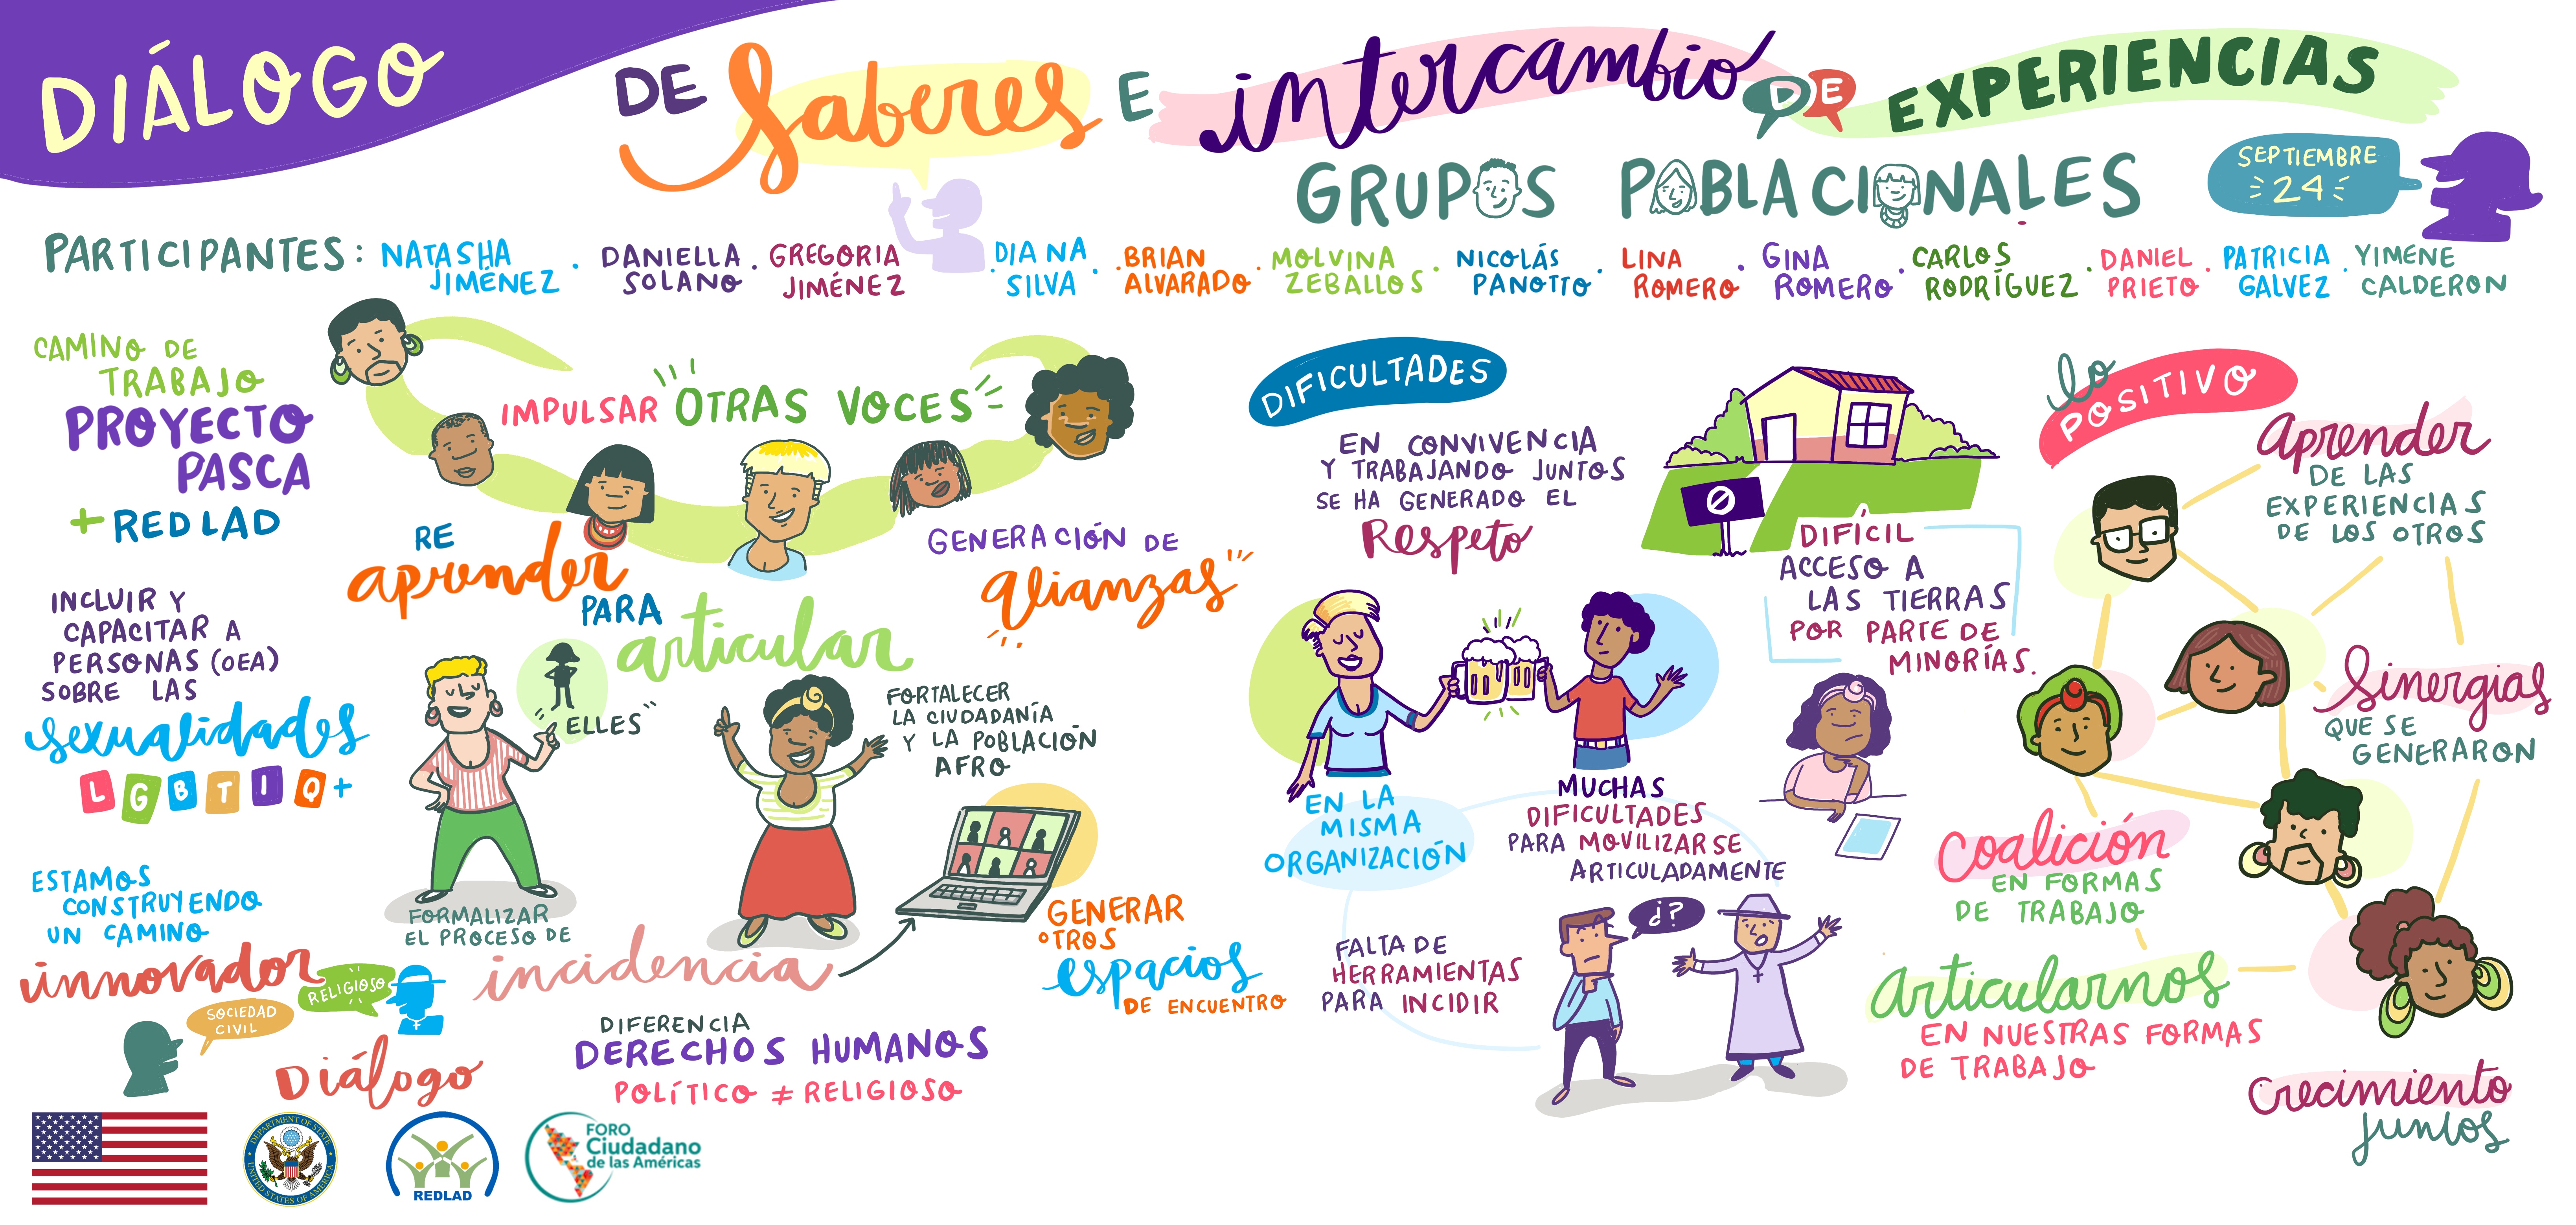 DIÁLOGO
DE Saberes E intercambio DE EXPERIENCIAS
GRUPOS POBLACIONALES
SEPTIEMBRE
24
PARTICIPANTES:
NATASHA
JIMÉNEZ
DANIELLA
SOLANO
GREGORIA
JIMÉNEZ
DIANA
SILVA
BRIAN
ALVARADO
MOLVINA
ZEBALLOS
NICOLÁS
PANOTTO
LINA
ROMERO
GINA
ROMERO
CARLOS
RODRÍGUEZ
DANIEL
PRIETO
PATRICIA
GALVEZ
YIMENE
CALDERON
CAMINO DE
TRABAJO
PROYECTO
PASCA
+ REDLAD
IMPULSAR OTRAS VOCES
RE
aprender
PARA
articular
GENERACIÓN DE
alianzas
INCLUIR Y
CAPACITAR A
PERSONAS (OEA)
SOBRE LAS
sexualidades
LGBTIQ+
"ELLES"
FORTALECER
LA CIUDADANÍA
Y LA POBLACIÓN
AFRO
ESTAMOS
CONSTRUYENDO
UN CAMINO
innovador
RELIGIOSO
SOCIEDAD
CIVIL
Diálogo
FORMALIZAR
EL PROCESO DE
incidencia
GENERAR
OTROS
espacios
DE ENCUENTRO
DIFERENCIA
DERECHOS HUMANOS
POLÍTICO ≠ RELIGIOSO
DIFICULTADES
EN CONVIVENCIA
Y TRABAJANDO JUNTOS
SE HA GENERADO EL
Respeto
DIFÍCIL
ACCESO A
LAS TIERRAS
POR PARTE DE
MINORÍAS.
EN LA
MISMA
ORGANIZACIÓN
MUCHAS
DIFICULTADES
PARA MOVILIZARSE
ARTICULADAMENTE
FALTA DE
HERRAMIENTAS
PARA INCIDIR
¿?
lo
POSITIVO
aprender
DE LAS
EXPERIENCIAS
DE LOS OTROS
Sinergias
QUE SE
GENERARON
Coalición
EN FORMAS
DE TRABAJO
Articularnos
EN NUESTRAS FORMAS
DE TRABAJO
Crecimiento
juntos
DEPARTMENT OF STATE
UNITED STATES OF AMERICA
REDLAD
FORO
Ciudadano
de las Américas